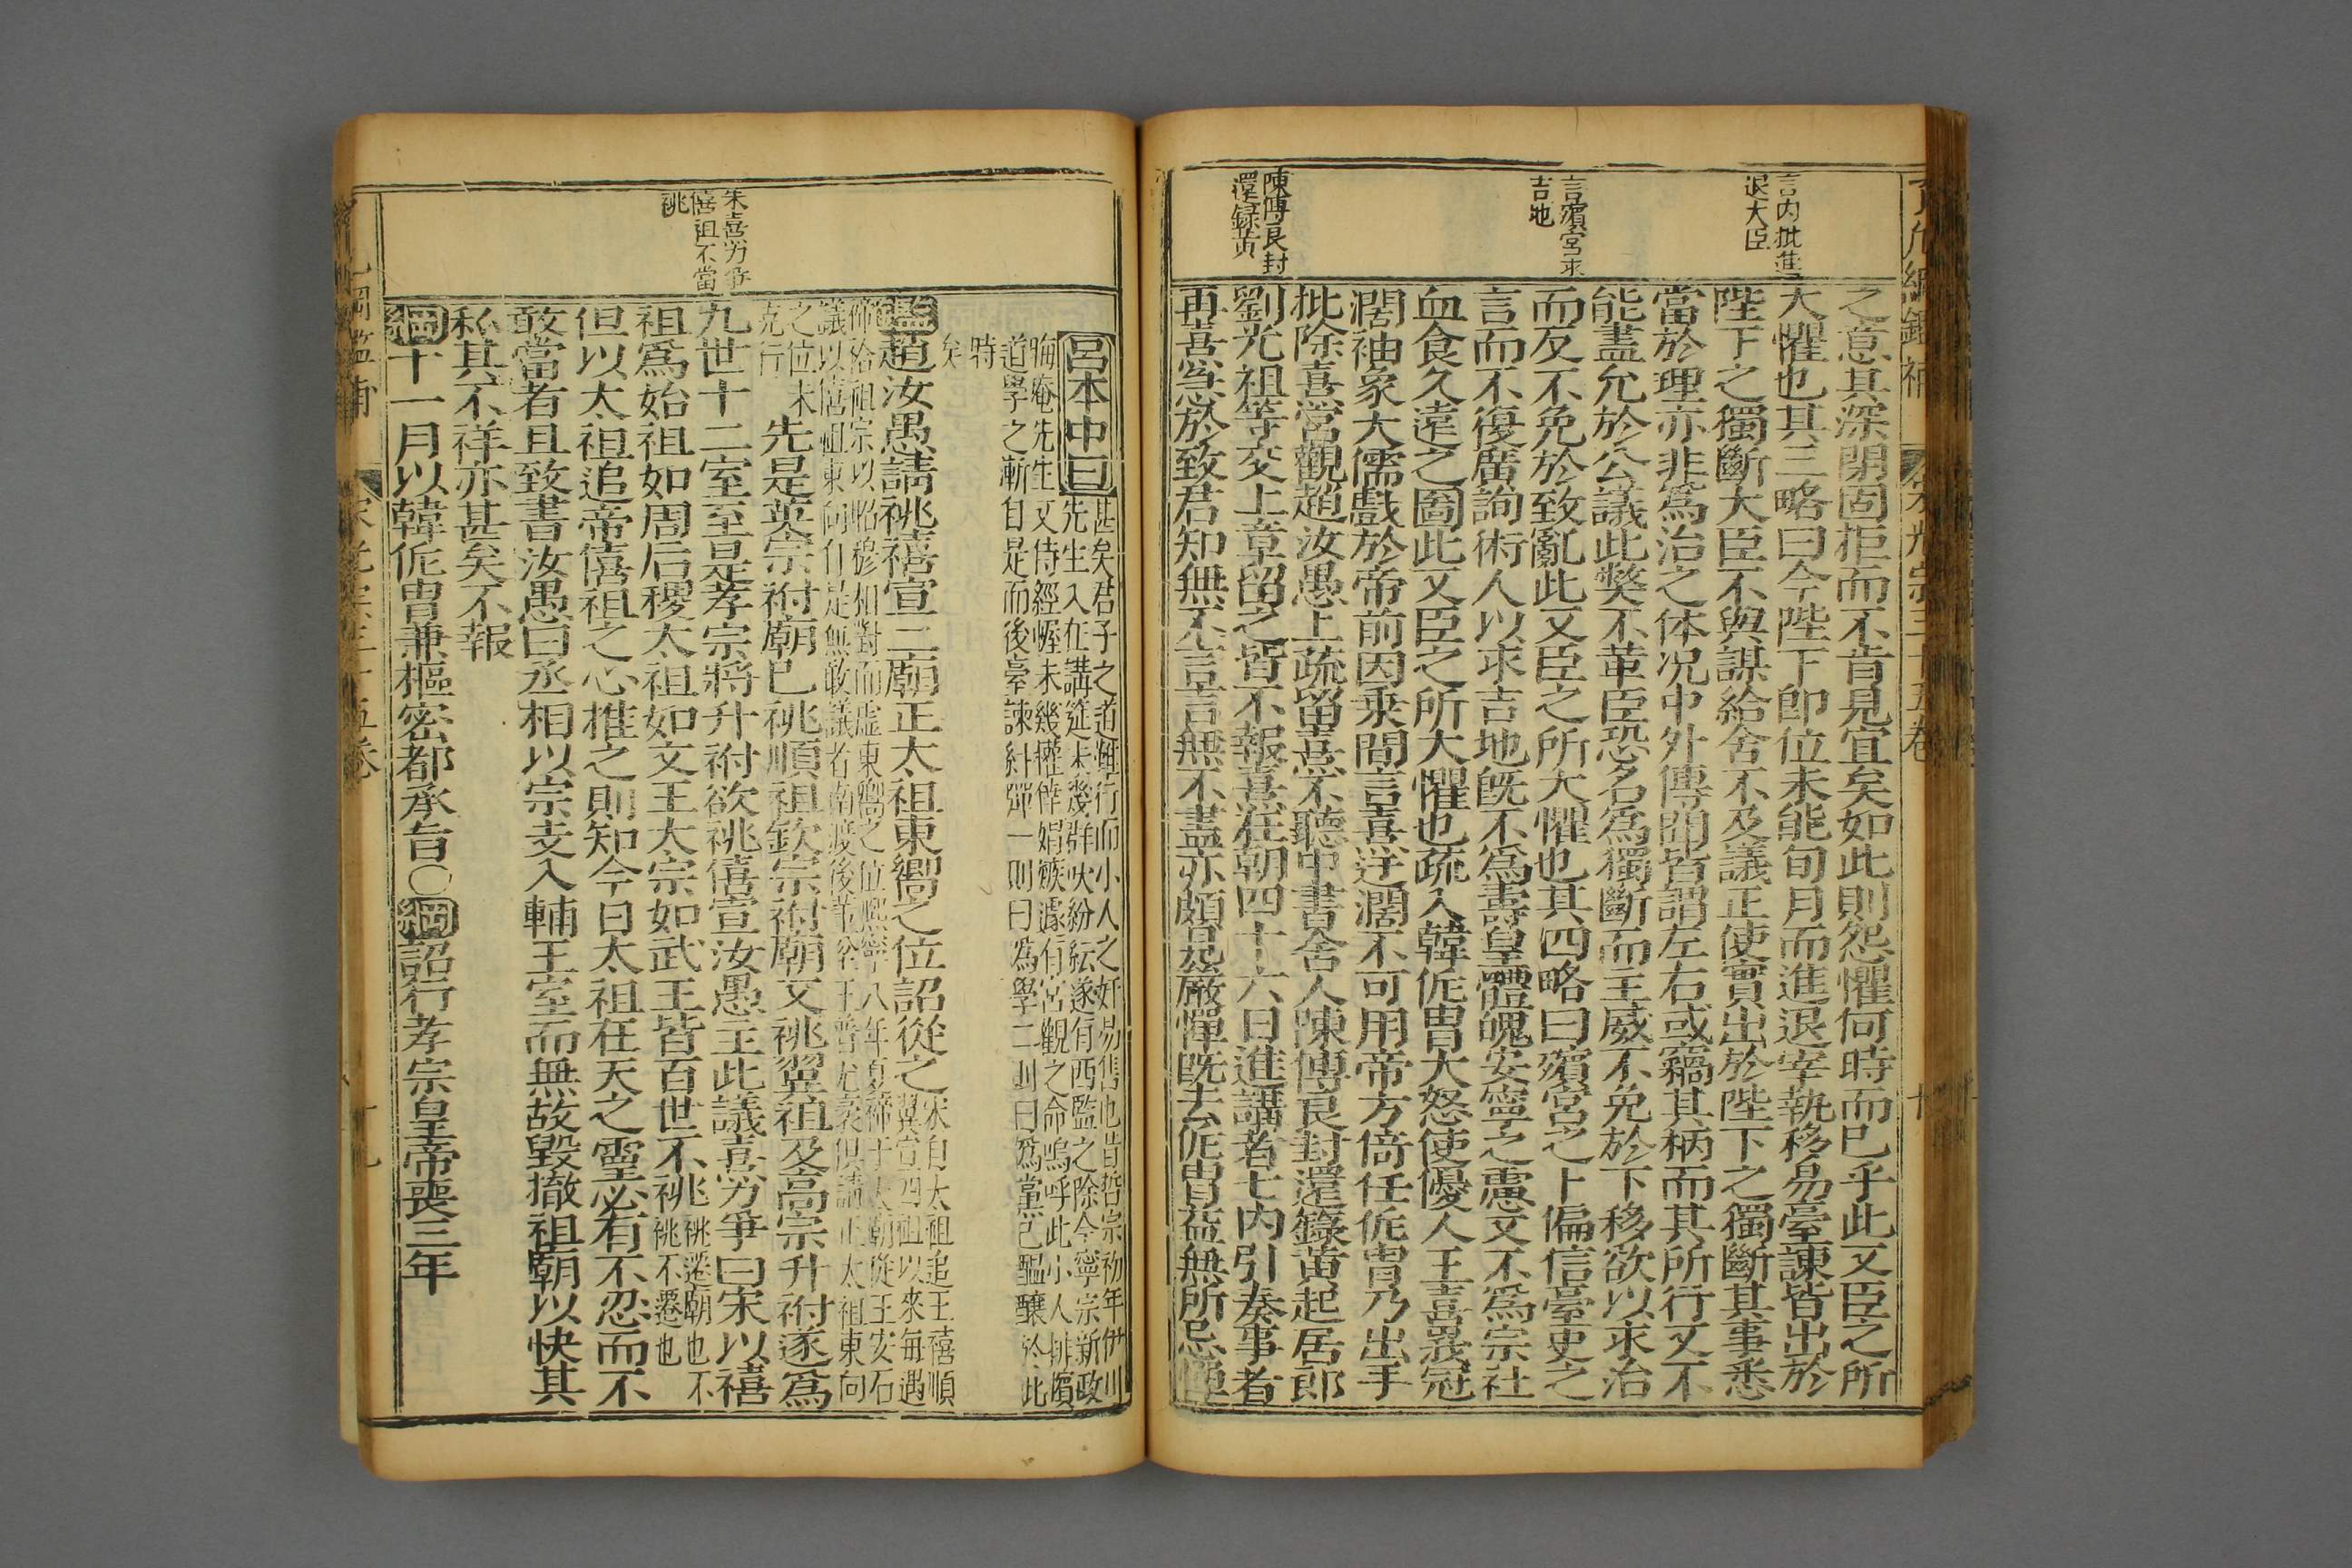 言内批進
退大臣
言殯宮求
吉地
陳傅良封
還録黃
之意其深閉固拒而不肯見宜矣如此則怨懼何時而已乎此又臣之所
大懼也其三略曰今陛下即位未能旬月而進退宰執移易臺諫皆出於
陛下之獨斷大臣不與謀給舍不及議正使實出於陛下之獨斷其事悉
當於理亦非爲治之体况中外傳聞皆謂左右或竊其柄而其所行又不
能盡允於公議此獘不革臣恐名爲獨斷而主威不免於下移欲以求治
而反不免於致亂此又臣之所大懼也其四略曰殯宮之卜偏信臺史之
言而不復廣詢術人以求吉地既不爲壽皇體魄安寧之慮又不爲宗社
血食久遠之圖此又臣之所大懼也疏入韓侂冑大怒使優人王喜峩冠
濶袖象大儒戲於帝前因乗間言熹迂濶不可用帝方倚任侂冑乃出手
批除熹宮觀趙汝愚上疏留熹不聽中書舍人陳傅良封還錄黃起居郎
劉光祖等交上章留之皆不報熹在朝四十六日進講者七内引奏事者
再喜急於致君知無不言言無不盡亦頗見嚴憚既去侂冑益無所忌憚
朱熹力爭
僖祖不當
祧
呂本中曰
甚矣君子之道難行而小人之奸易售也昔哲宗初年伊川
先生入在講筵未幾群吠紛紜遂有西監之除今寧宗新政
晦庵先生又侍經幄未幾權倖娟嫉遽有宮觀之命嗚呼此小人排擯
道學之漸自是而後臺諫糾彈一則曰爲學二則曰爲黨已醞釀於此
時
矣
鑑趙汝愚請祧禧宣二廟正太祖東嚮之位詔從之
宋自太祖追王禧順
翼宣四祖以來每遇
禘祫祖宗以昭穆相對而虛東嚮之位熙寧八年夏禘于太廟從王安石
議以僖祖東向自是無敢議者南渡後董弅王普尤袤俱請正太祖東向
之位未
克行
先是英宗祔廟已祧順祖欽宗祔廟又祧翼祖及高宗升祔遂爲
九世十二室至是孝宗將升祔欲祧僖宣汝愚主此議熹力爭曰宋以禧
祖爲始祖如周后稷太祖如文王太宗如武王皆百世不祧
祧遷廟也不
祧不遷也
但以太祖追帝僖祖之心推之則知今日太祖在天之靈必有不忍而不
敢當者且致書汝愚曰丞相以宗支入輔王室而無故毀撤祖廟以快其
私其不祥亦甚矣不報
綱十一月以韓侂冑兼樞密都承旨〇綱詔行孝宗皇帝喪三年